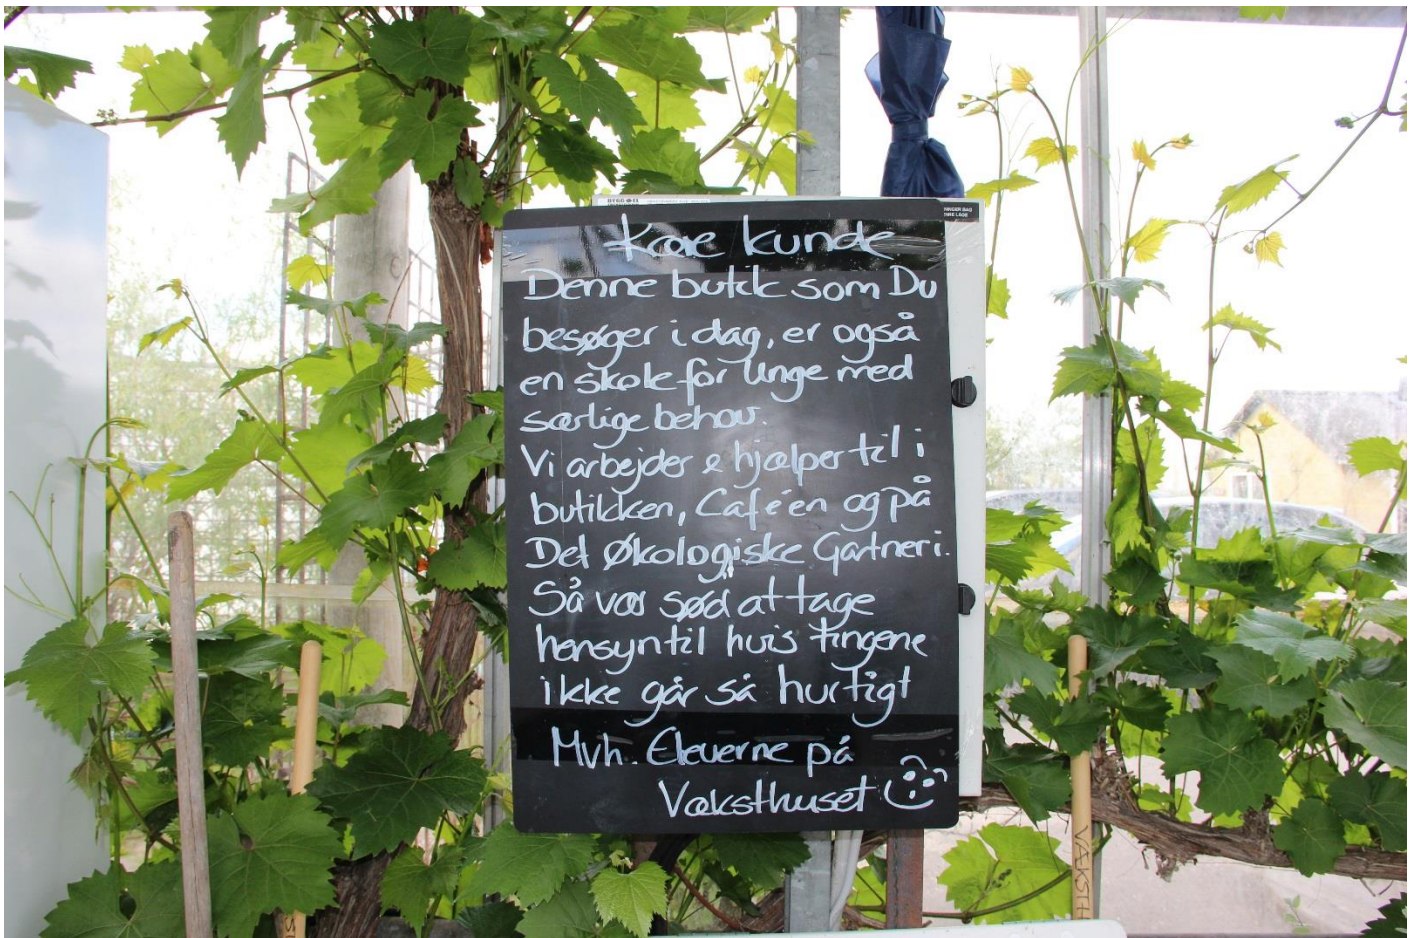 Kære kunde
Denne butik som Du
besøger i dag, er også
en skole for Unge med
særlige behov.
Vi arbejder & hjælper til i
butikken, Caféen og på
Det Økologiske Gartneri.
Så vær sød at tage
hensyn til hvis tingene
ikke går så hurtigt
Mvh. Eleverne på
Væksthuset
VÆKSTH